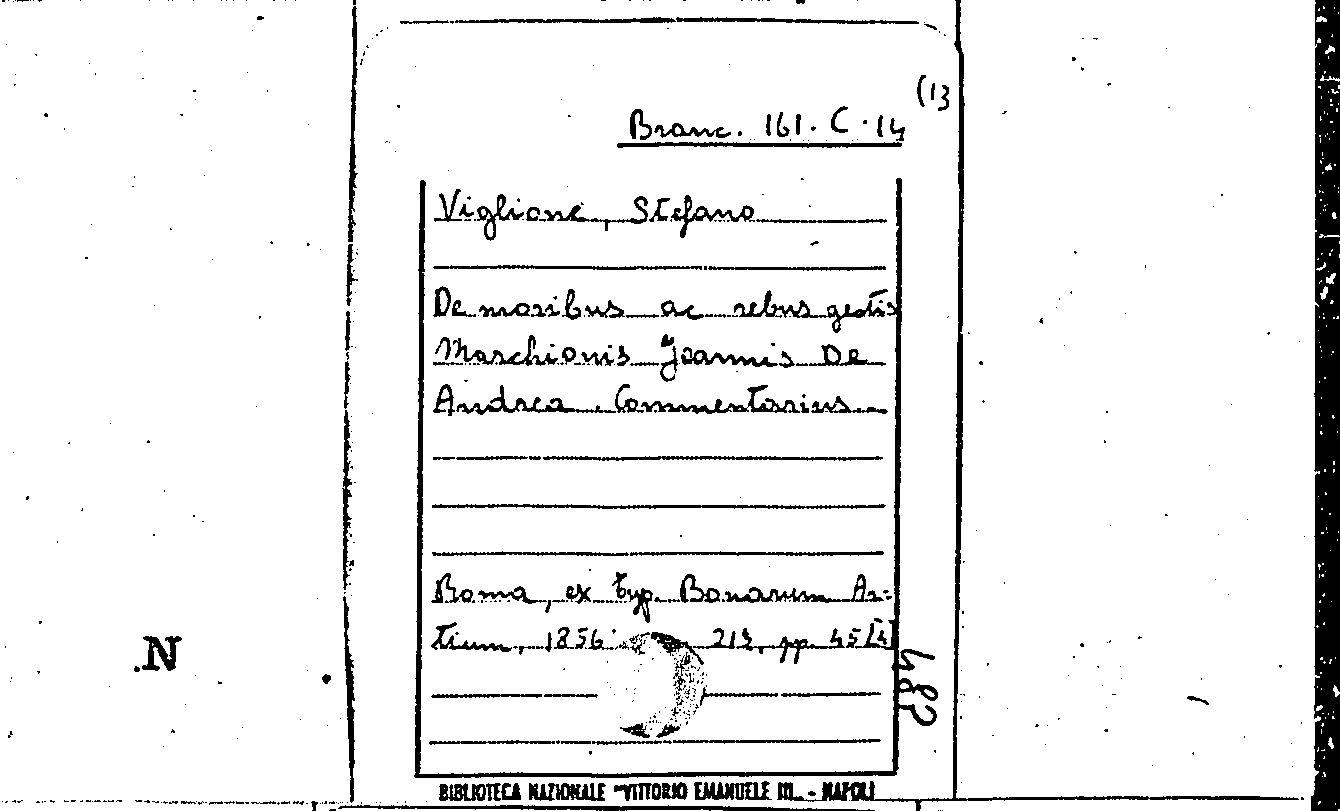 (13
Branc. 161. C. 14
Viglione, Stefano
De moribus ac rebus gestis
Marchionis Joannis De
Andrea. Commentarius.
Roma, ex typ. Bonarum Ar=
tium, 1856 213, pp. 45 [4]
482
N.
BIBLIOTECA NAZIONALE "VITTORIO EMANUELE III" - NAPOLI